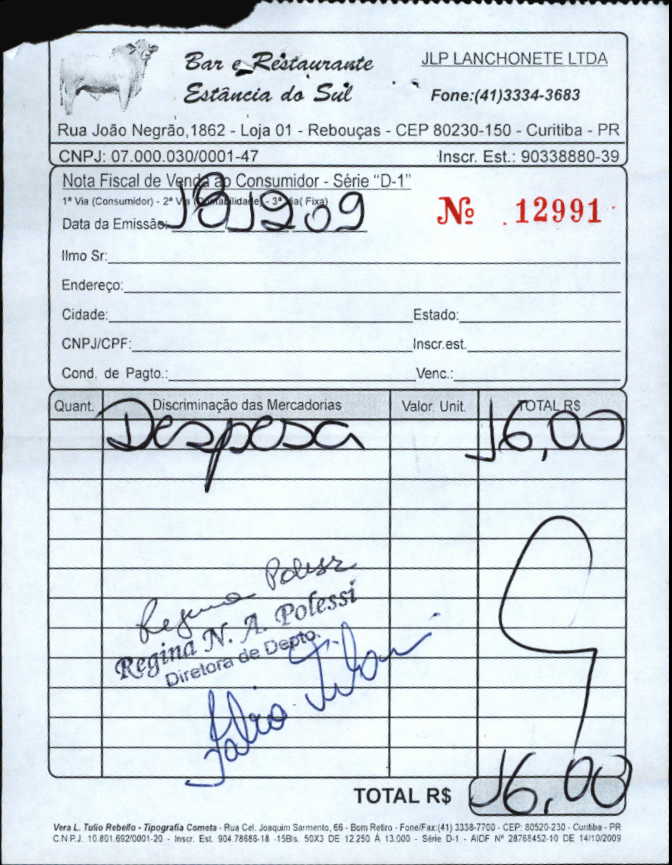 Bar e Restaurante
Estância do Sul
JLP LANCHONETE LTDA
Fone:(41)3334-3683
Rua João Negrão,1862 - Loja 01 - Rebouças - CEP 80230-150 - Curitiba - PR
CNPJ: 07.000.030/0001-47 Inscr. Est.: 90338880-39
Nota Fiscal de Venda ao Consumidor - Série "D-1"
1ª Via (Consumidor) - 2ª Via (Contabilidade) - 3ª Via( Fixa)
Nº 12991
Data da Emissão:
Ilmo Sr:
Endereço:
Cidade: Estado:
CNPJ/CPF: Inscr.est.
Cond. de Pagto.: Venc.:
Quant. Discriminação das Mercadorias Valor. Unit. TOTAL R$
Despesa 16,00
Regina Polessi
Regina N. A. Polessi
Diretora de Depto.
TOTAL R$ 16,00
Vera L. Tulio Rebello - Tipografia Cometa - Rua Cel. Joaquim Sarmento, 66 - Bom Retiro - Fone/Fax:(41) 3338-7700 - CEP: 80520-230 - Curitiba - PR
C.N.P.J. 10.801.692/0001-20 - Inscr. Est. 904.78686-18 -15Bls. 50X3 DE 12.250 À 13.000 - Série D-1 - AIDF Nº 28768452-10 DE 14/10/2009